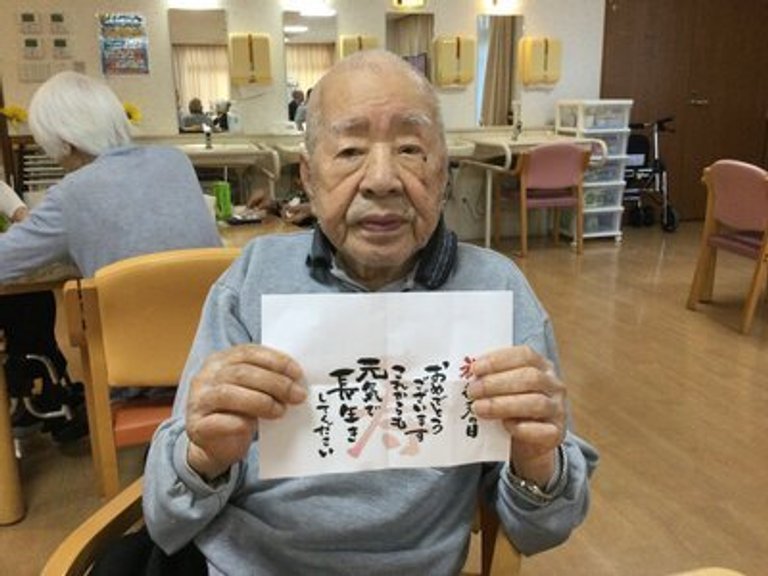 祝敬老の日
おめでとう
ございます
これからも
元気で
長生き
してください